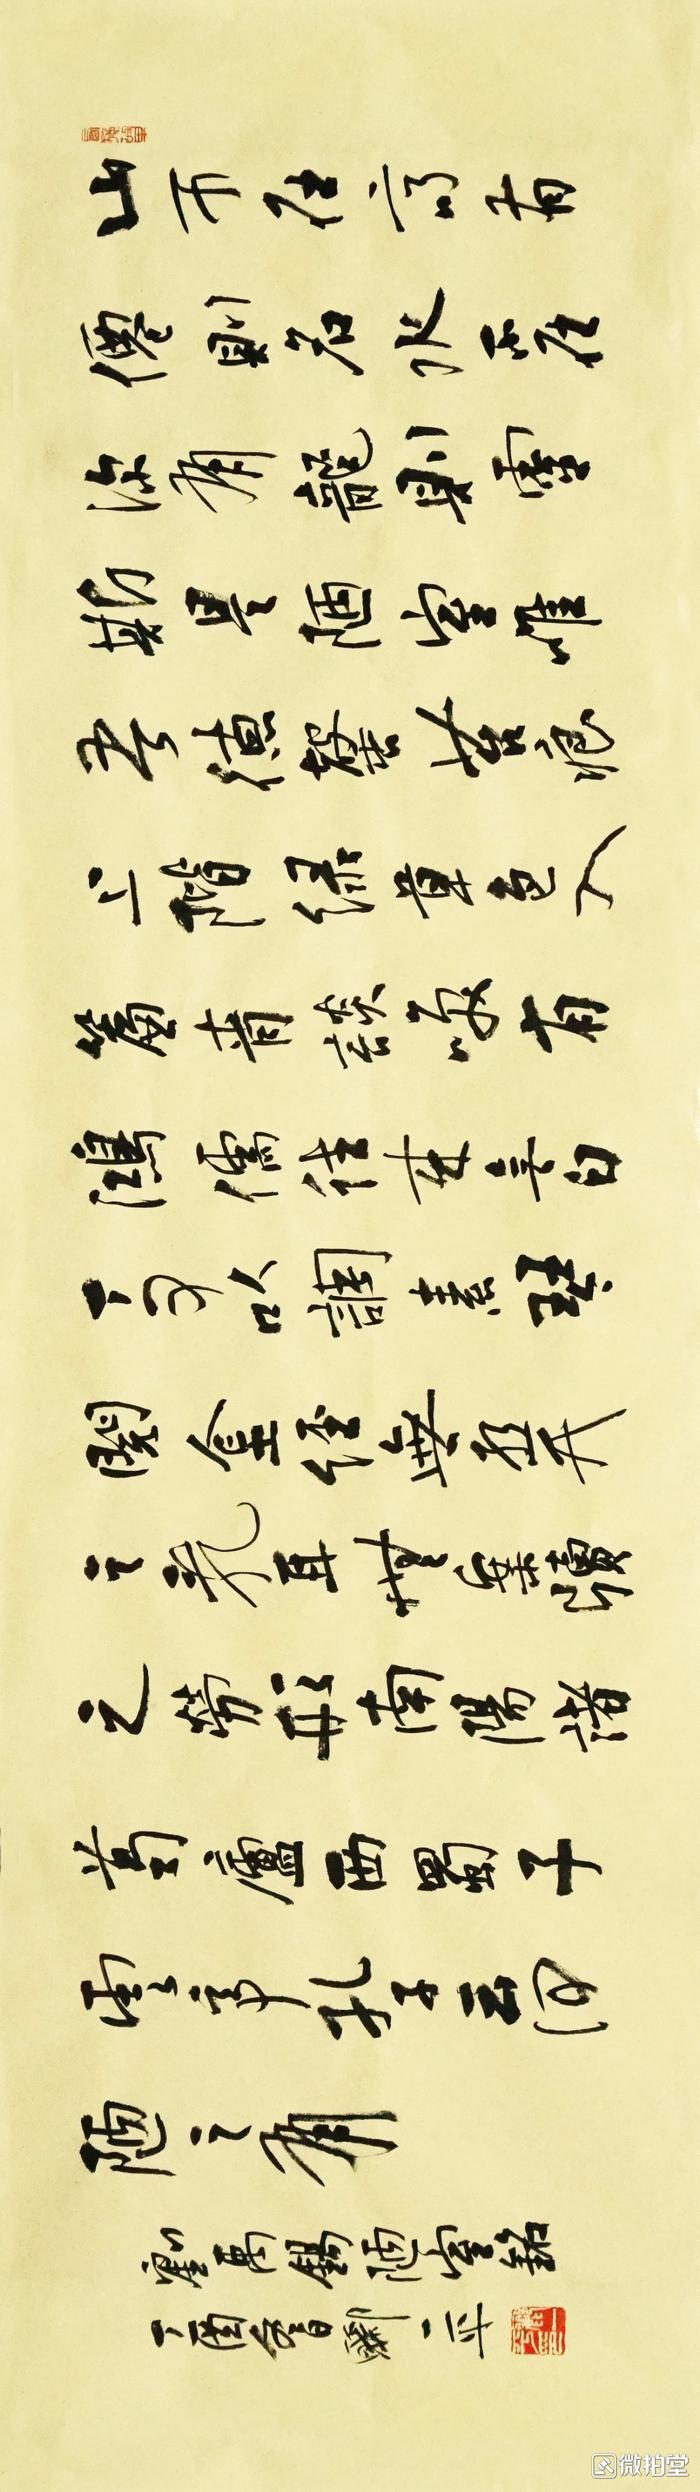 山不在高有
僊則名水不在
深有龍則靈
斯是陋室惟
吾德馨苔痕
上階綠草色入
簾青談咲有
鴻儒往來無白
丁可以調素琴
閱金經無絲竹
之亂耳無案牘
之勞形南陽諸
葛廬西蜀子
雲亭孔子云何
陋之有
劉禹錫陋室銘
丁酉一平
微拍堂